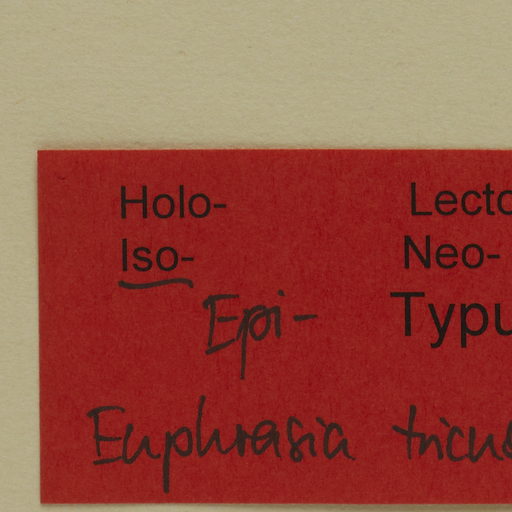 Holo- Lecto
Iso- Neo-
Epi- Typu
Euphrasia tricus